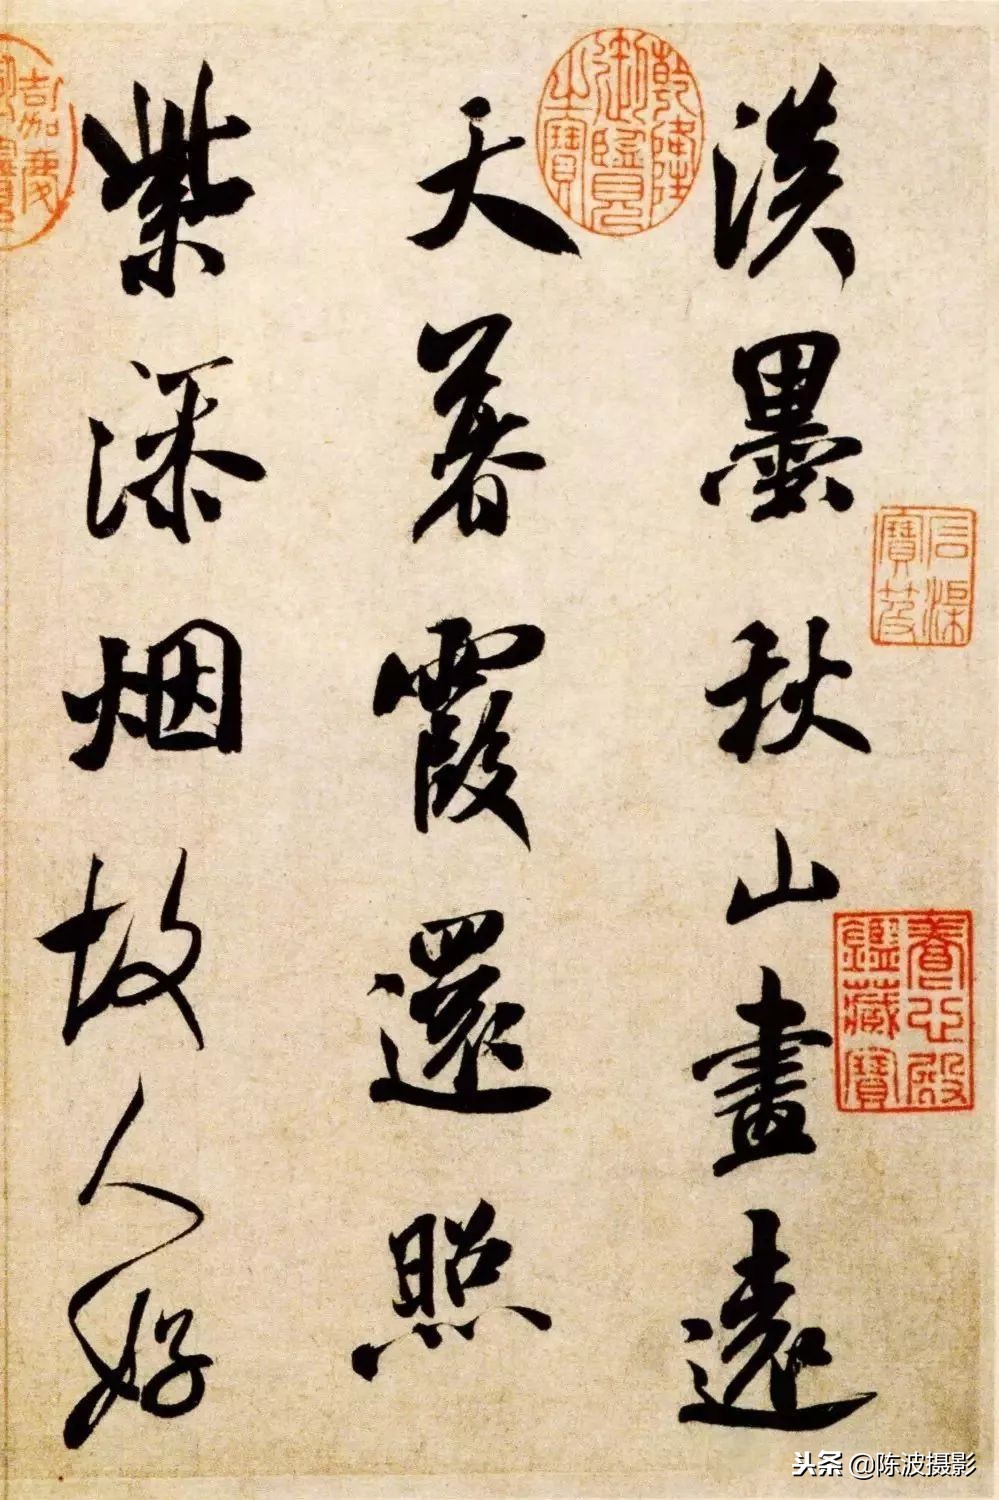 淡墨秋山畫遠
天暮霞還照
紫添烟故人好
乾隆御覽之寶
石渠寶笈
養心殿鑑藏寶
嘉慶
头条 @陈波摄影